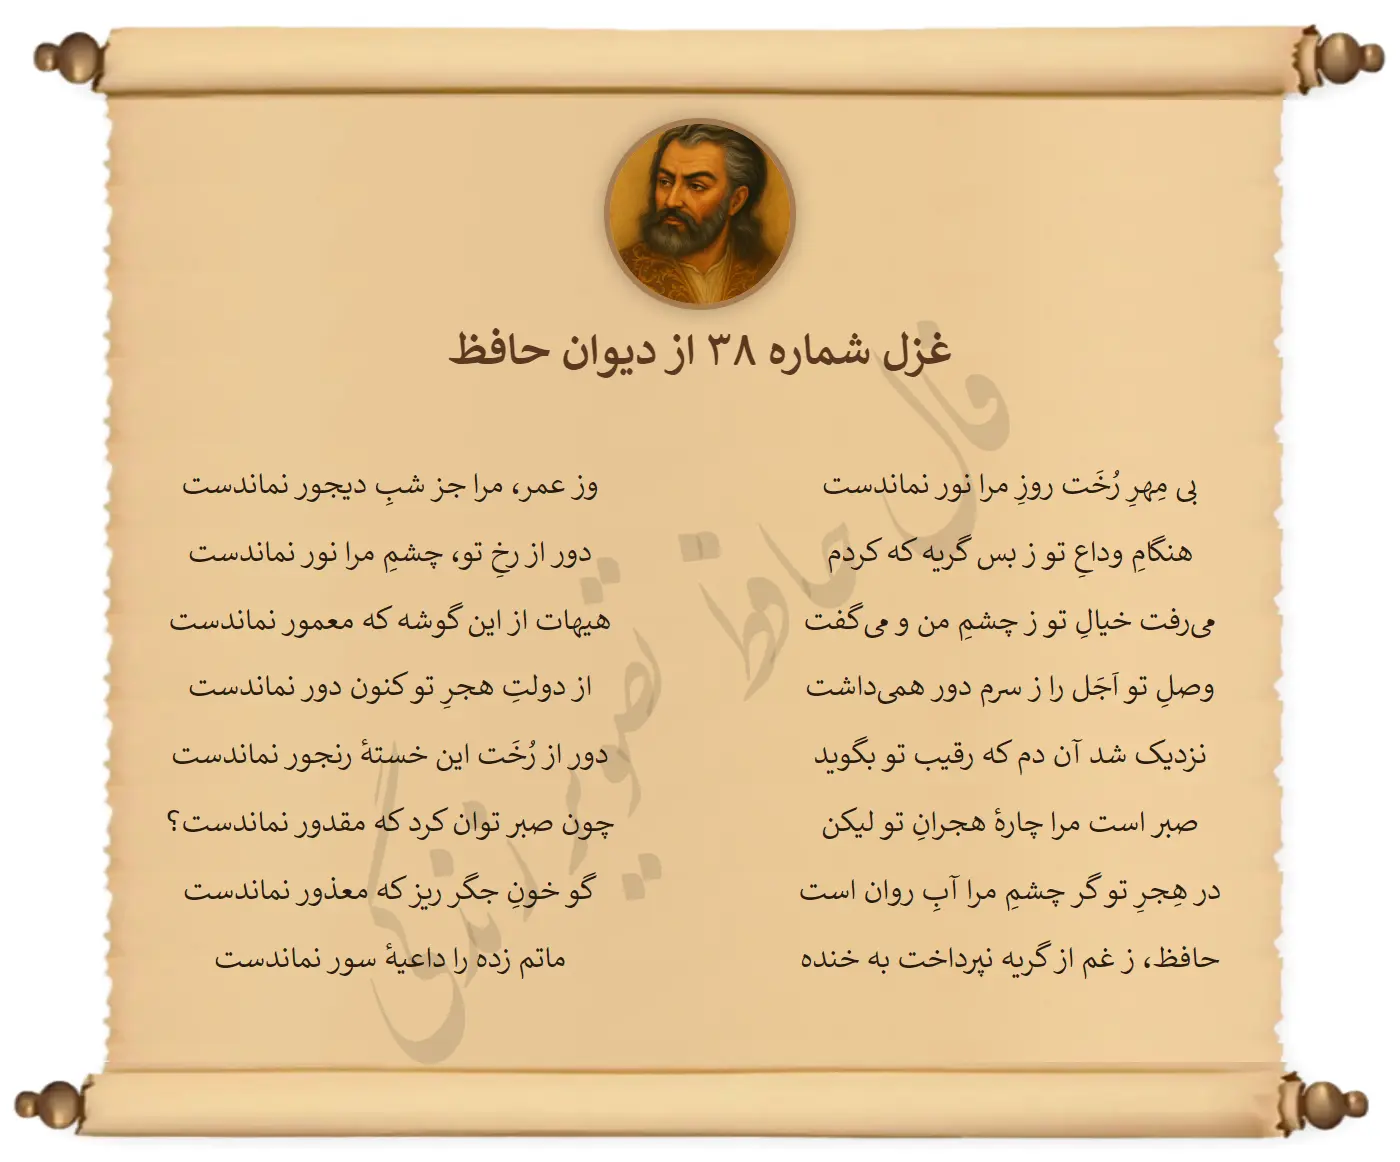 غزل شماره ۳۸ از دیوان حافظ
بی مِهرِ رُخَت روزِ مرا نور نماندست
وز عمر، مرا جز شبِ دیجور نماندست
هنگامِ وداعِ تو ز بس گریه که کردم
دور از رخِ تو، چشمِ مرا نور نماندست
می‌رفت خیالِ تو ز چشمِ من و می‌گفت
هیهات از این گوشه که معمور نماندست
وصلِ تو اَجَل را ز سرم دور همی‌داشت
از دولتِ هجرِ تو کنون دور نماندست
نزدیک شد آن دم که رقیب تو بگوید
دور از رُخَت این خستهٔ رنجور نماندست
صبر است مرا چارهٔ هجرانِ تو لیکن
چون صبر توان کرد که مقدور نماندست؟
در هِجرِ تو گر چشمِ مرا آبِ روان است
گو خونِ جگر ریز که معذور نماندست
حافظ، ز غم از گریه نپرداخت به خنده
ماتم زده را داعیهٔ سور نماندست
فال حافظ تصویر زندگی